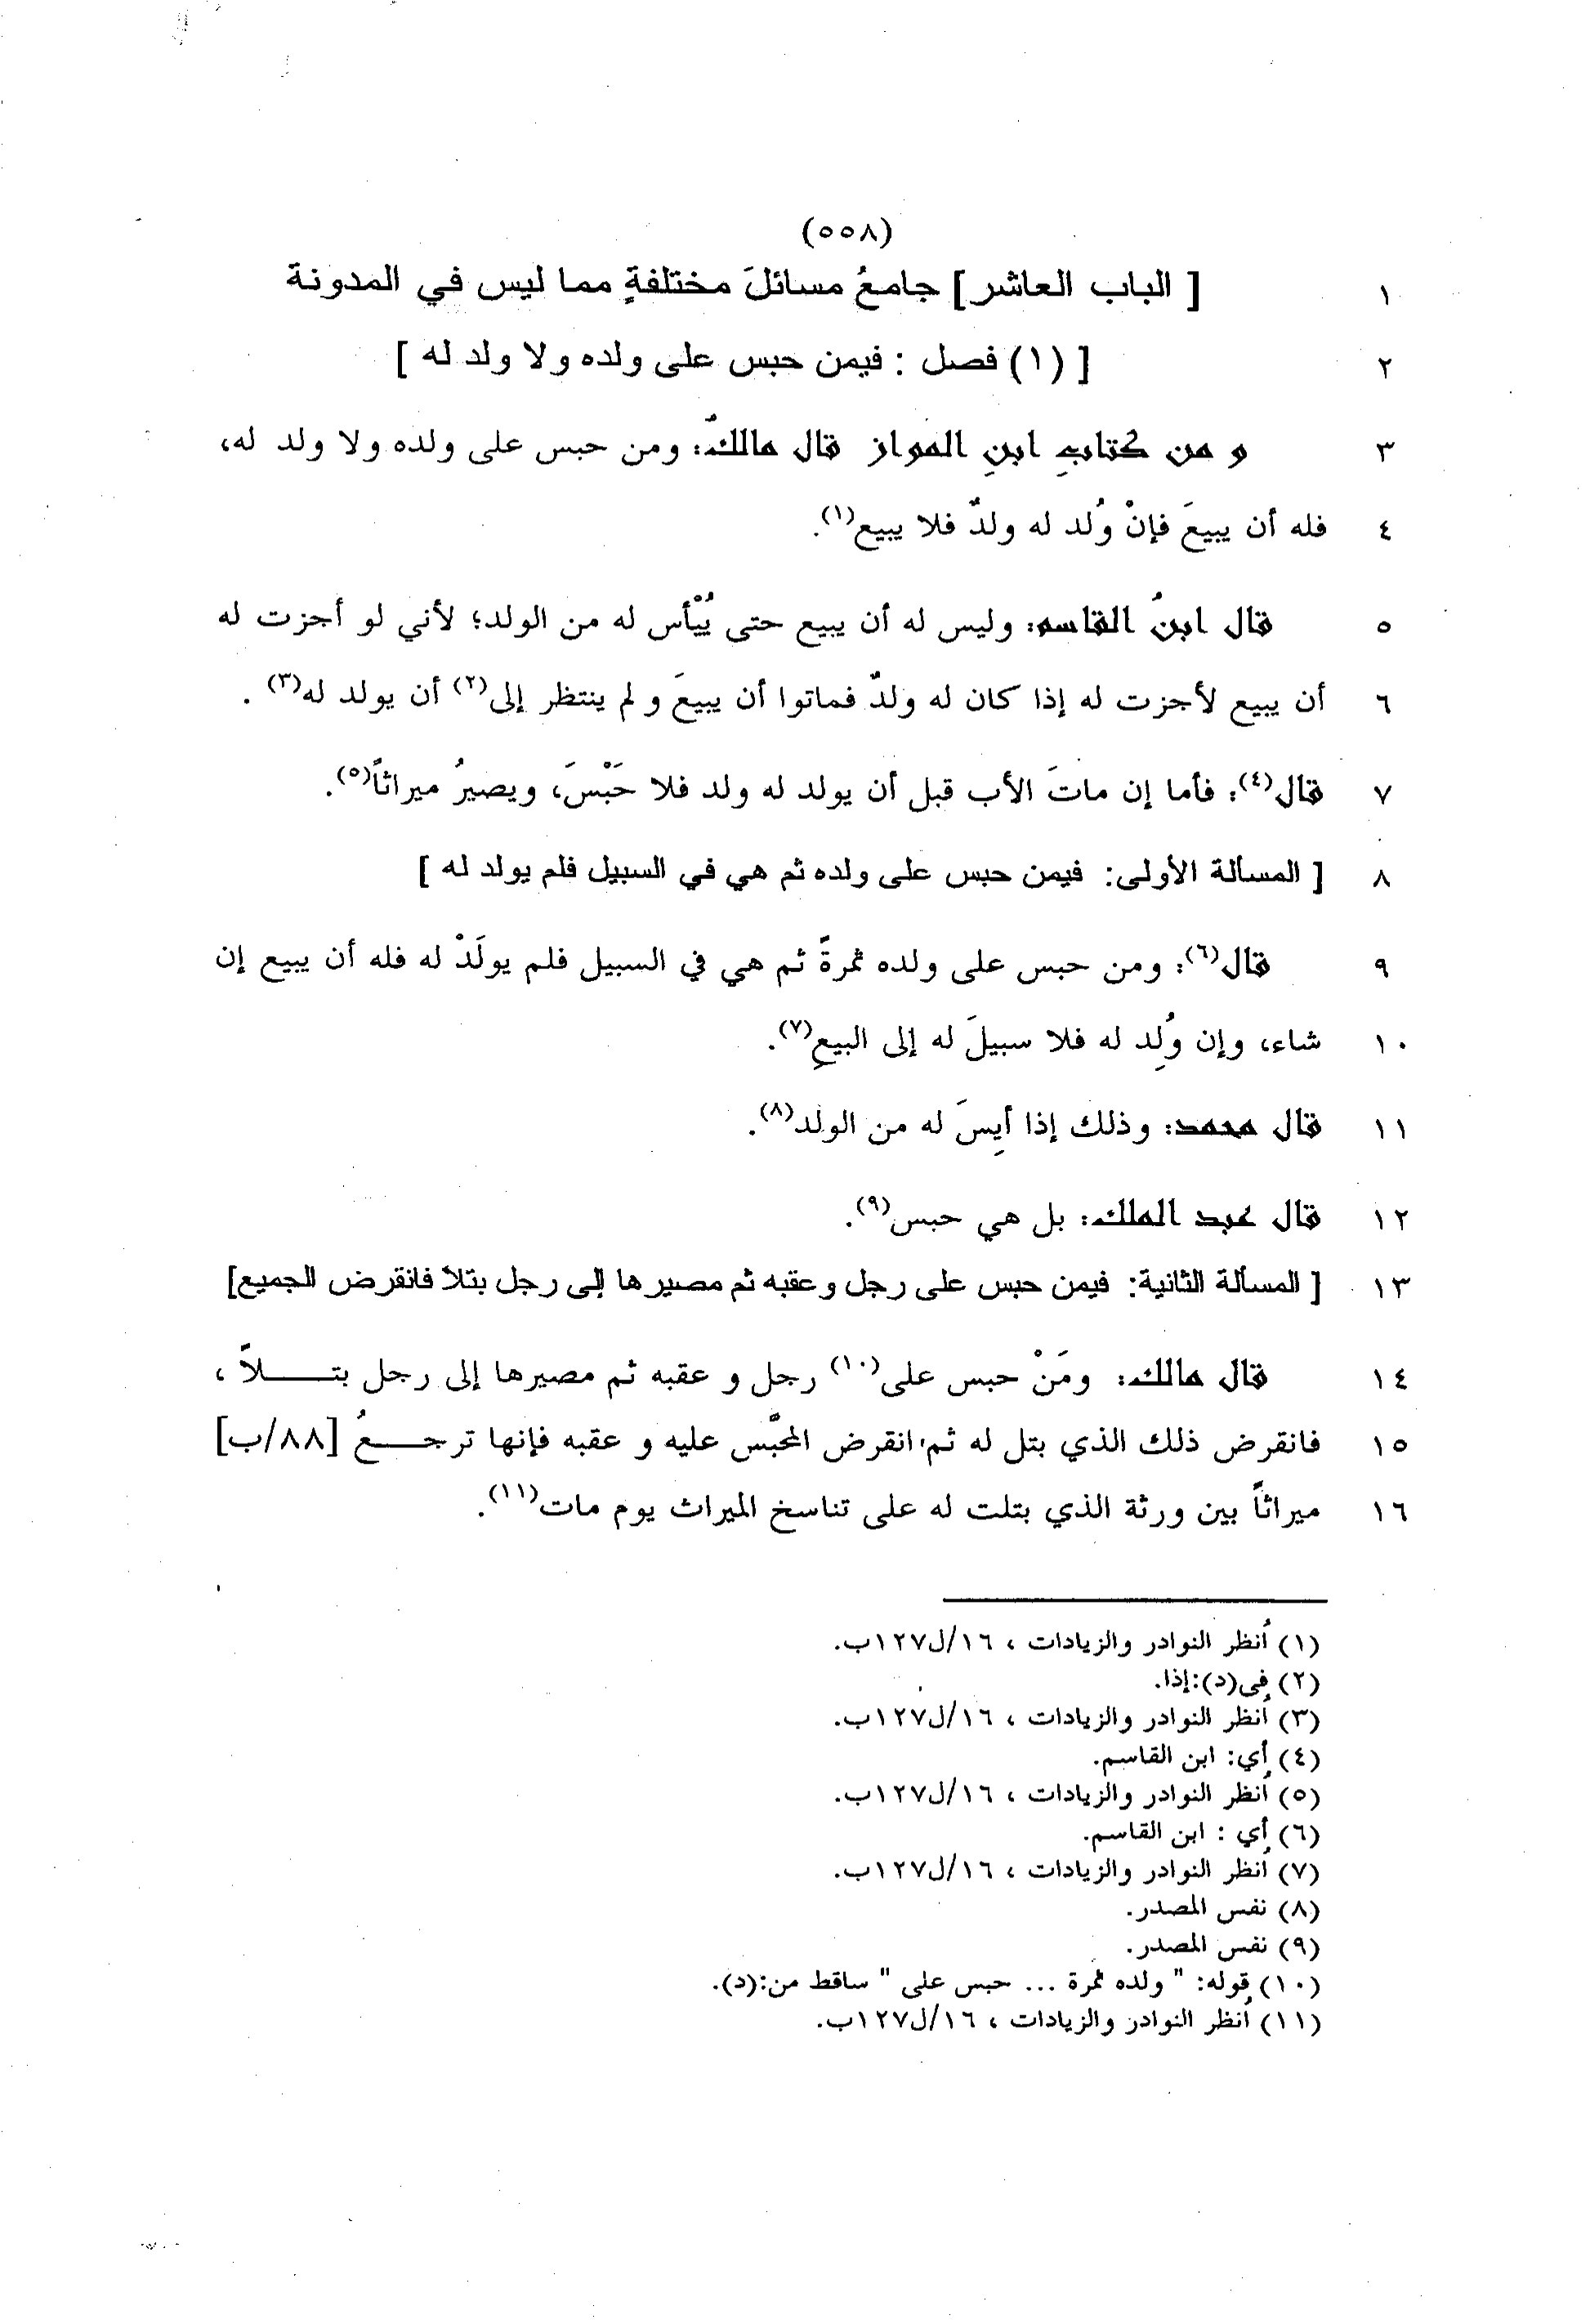 (٥٥٨)
١ [ الباب العاشر ] جامعُ مسائلَ مختلفةٍ مما ليس في المدونة
٢ [ (١) فصل : فيمن حبس على ولده ولا ولد له ]
٣ و من كتابِ ابنِ المواز قال مالكٌ: ومن حبس على ولده ولا ولد له،
٤ فله أن يبيعَ فإنْ وُلد له ولدٌ فلا يبيع(١).
٥ قال ابنُ القاسم: وليس له أن يبيع حتى يُيْأس له من الولد؛ لأني لو أجزت له
٦ أن يبيع لأجزت له إذا كان له ولدٌ فماتوا أن يبيعَ و لم ينتظر إلى(٢) أن يولد له(٣) .
٧ قال(٤): فأما إن ماتَ الأب قبل أن يولد له ولد فلا حَبْسَ، ويصيرُ ميراثاً(٥).
٨ [ المسألة الأولى: فيمن حبس على ولده ثم هي في السبيل فلم يولد له ]
٩ قال(٦): ومن حبس على ولده ثمرةً ثم هي في السبيل فلم يولَدْ له فله أن يبيع إن
١٠ شاء، وإن وُلِد له فلا سبيلَ له إلى البيعِ(٧).
١١ قال محمد: وذلك إذا أيِسَ له من الولد(٨).
١٢ قال عبد الملك: بل هي حبس(٩).
١٣ [ المسألة الثانية: فيمن حبس على رجل وعقبه ثم مصيرها إلى رجل بتلاً فانقرض الجميع]
١٤ قال مالك: ومَنْ حبس على(١٠) رجل و عقبه ثم مصيرها إلى رجل بتـــــلاً ،
١٥ فانقرض ذلك الذي بتل له ثم انقرض المحبَّس عليه و عقبه فإنها ترجـــعُ [٨٨/ب]
١٦ ميراثاً بين ورثة الذي بتلت له على تناسخ الميراث يوم مات(١١).
(١) اُنظر النوادر والزيادات ، ١٦/ل١٢٧ب.
(٢) في(د):إذا.
(٣) اُنظر النوادر والزيادات ، ١٦/ل١٢٧ب.
(٤) أي: ابن القاسم.
(٥) اُنظر النوادر والزيادات ، ١٦/ل١٢٧ب.
(٦) أي : ابن القاسم.
(٧) اُنظر النوادر والزيادات ، ١٦/ل١٢٧ب.
(٨) نفس المصدر.
(٩) نفس المصدر.
(١٠) قوله: " ولده ثمرة ... حبس على " ساقط من:(د).
(١١) اُنظر النوادر والزيادات ، ١٦/ل١٢٧ب.